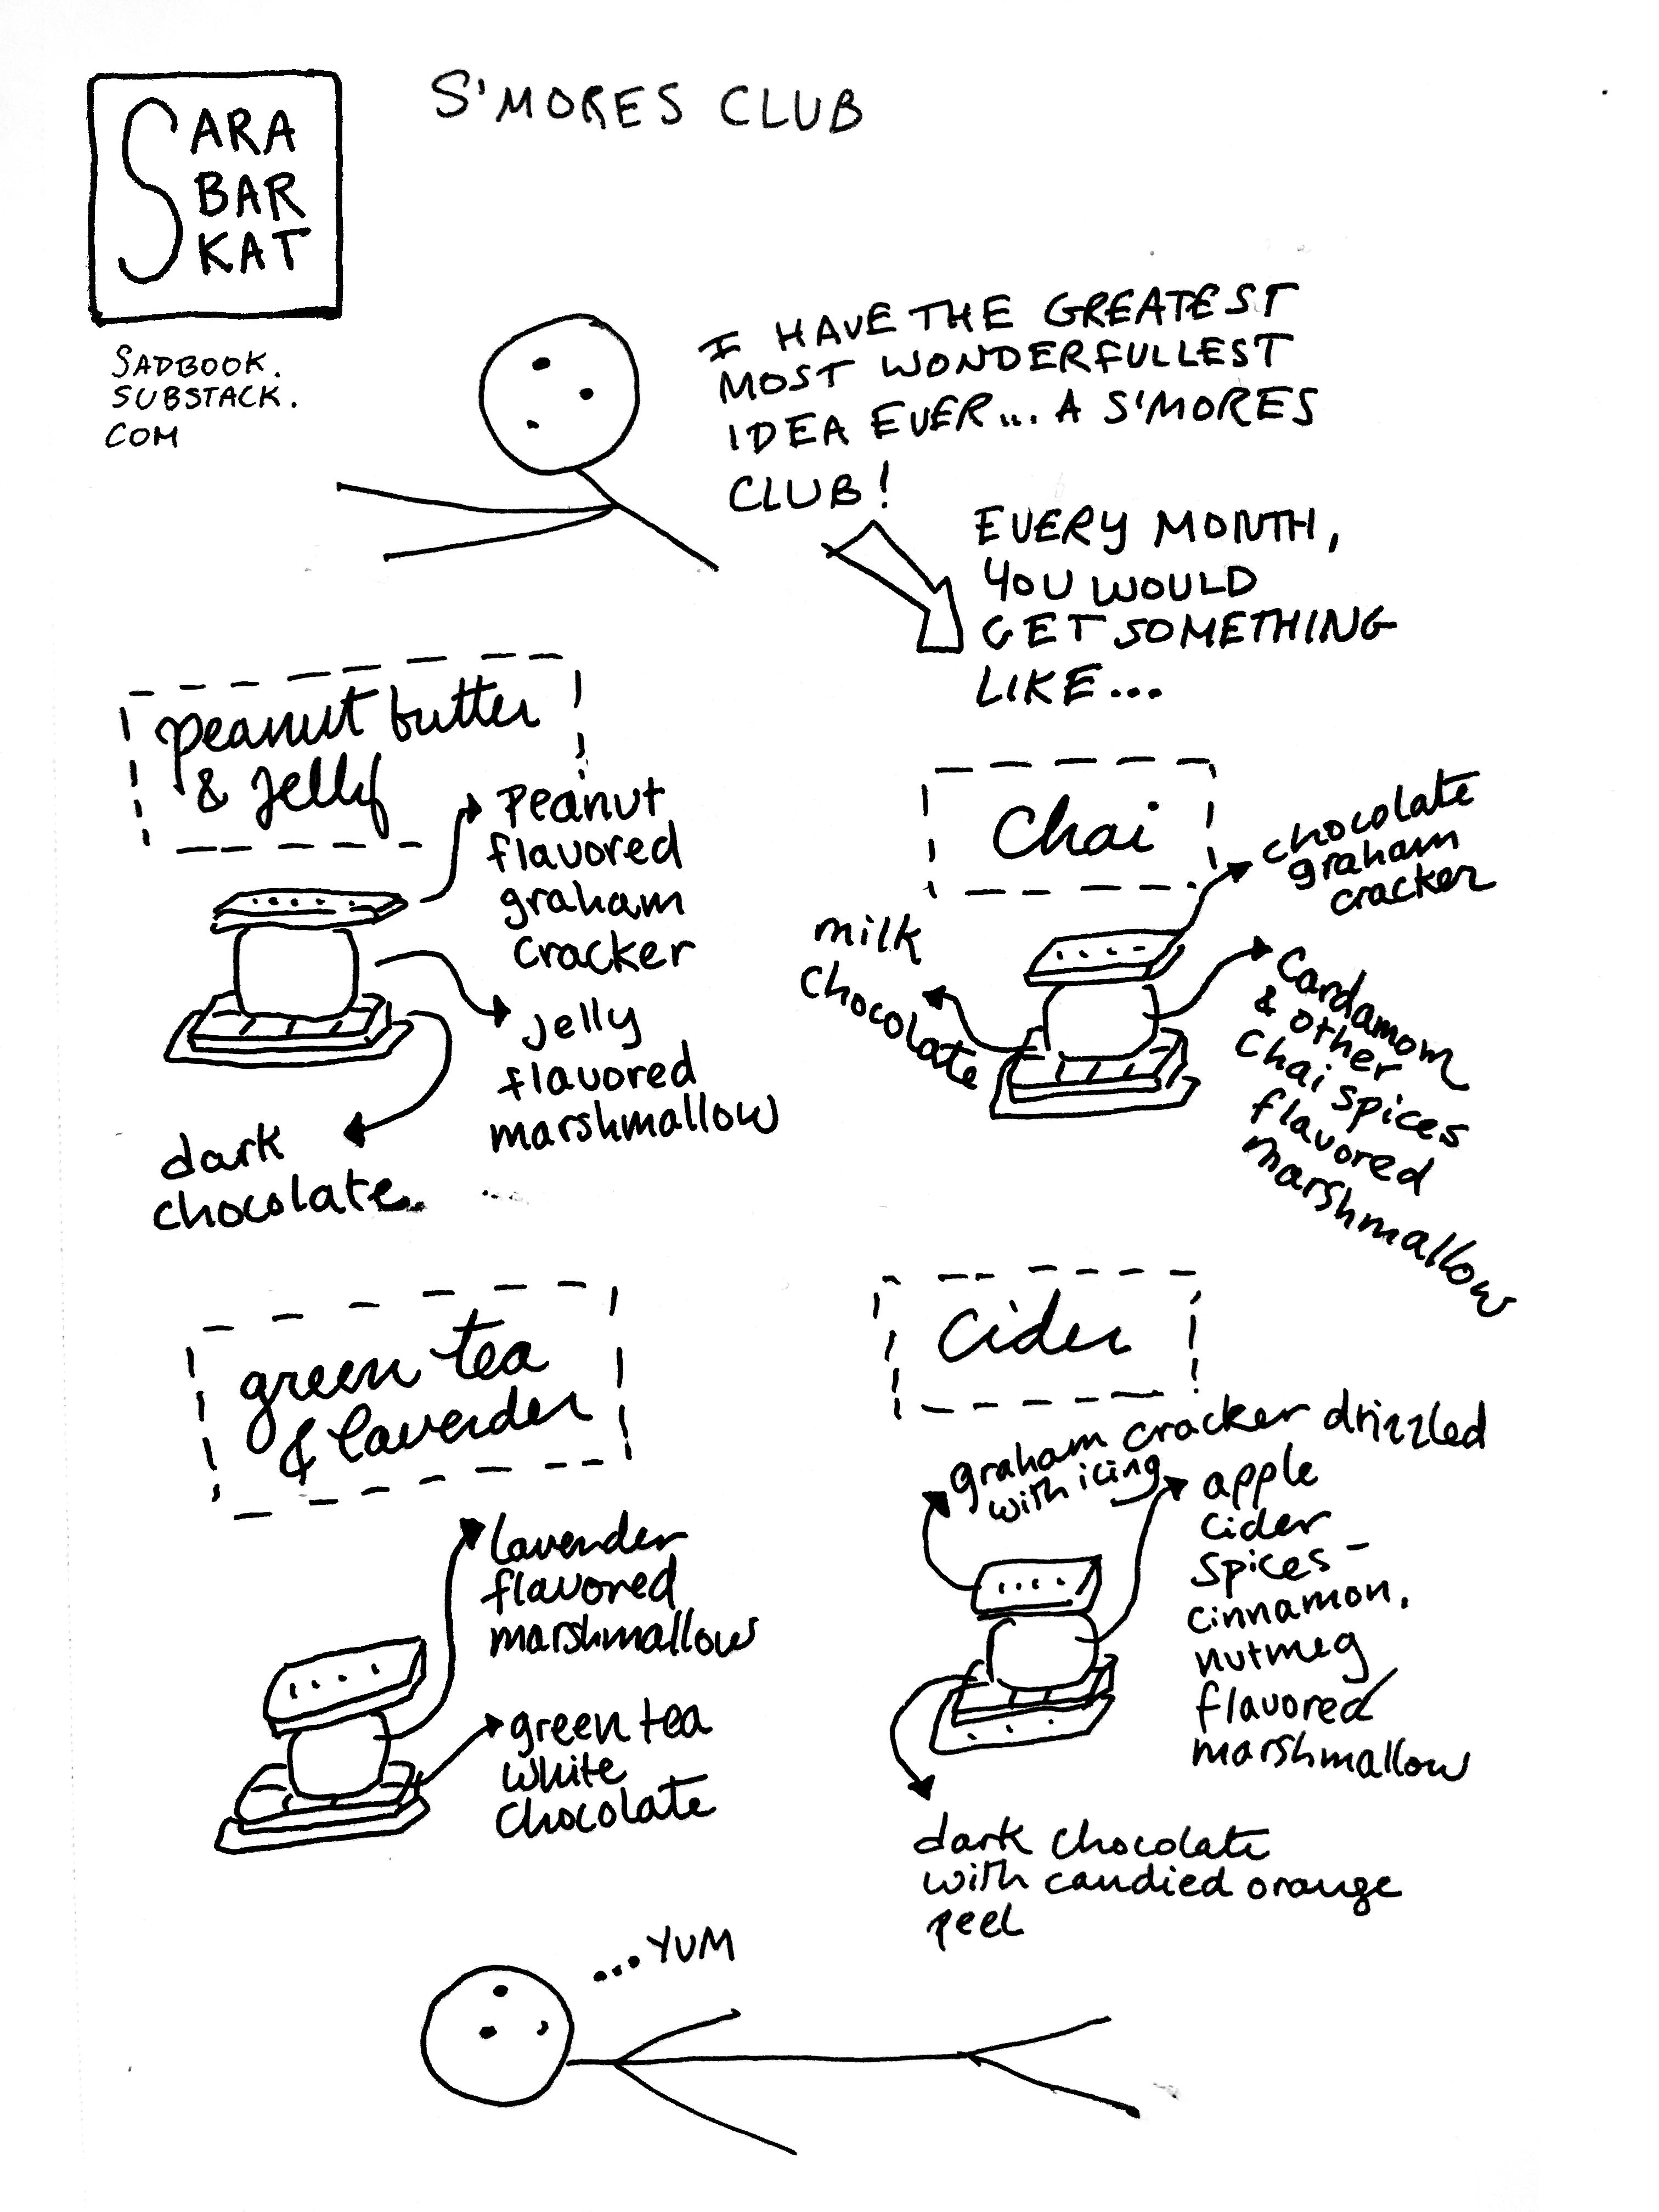 S'MORES CLUB
SARA
BAR
KAT
SADBOOK.
SUBSTACK.
COM
I HAVE THE GREATEST
MOST WONDERFULLEST
IDEA EVER... A S'MORES
CLUB!
EVERY MONTH,
YOU WOULD
GET SOMETHING
LIKE...
peanut butter
& jelly
Peanut
flavored
graham
cracker
jelly
flavored
marshmallow
dark
chocolate
Chai
chocolate
graham
cracker
milk
chocolate
Cardamom
& other
Chai spices
flavored
marshmallow
green tea
& lavender
lavender
flavored
marshmallow
green tea
white
chocolate
Cider
graham cracker drizzled
with icing
apple
cider
spices-
cinnamon,
nutmeg
flavored
marshmallow
dark chocolate
with candied orange
peel
...YUM